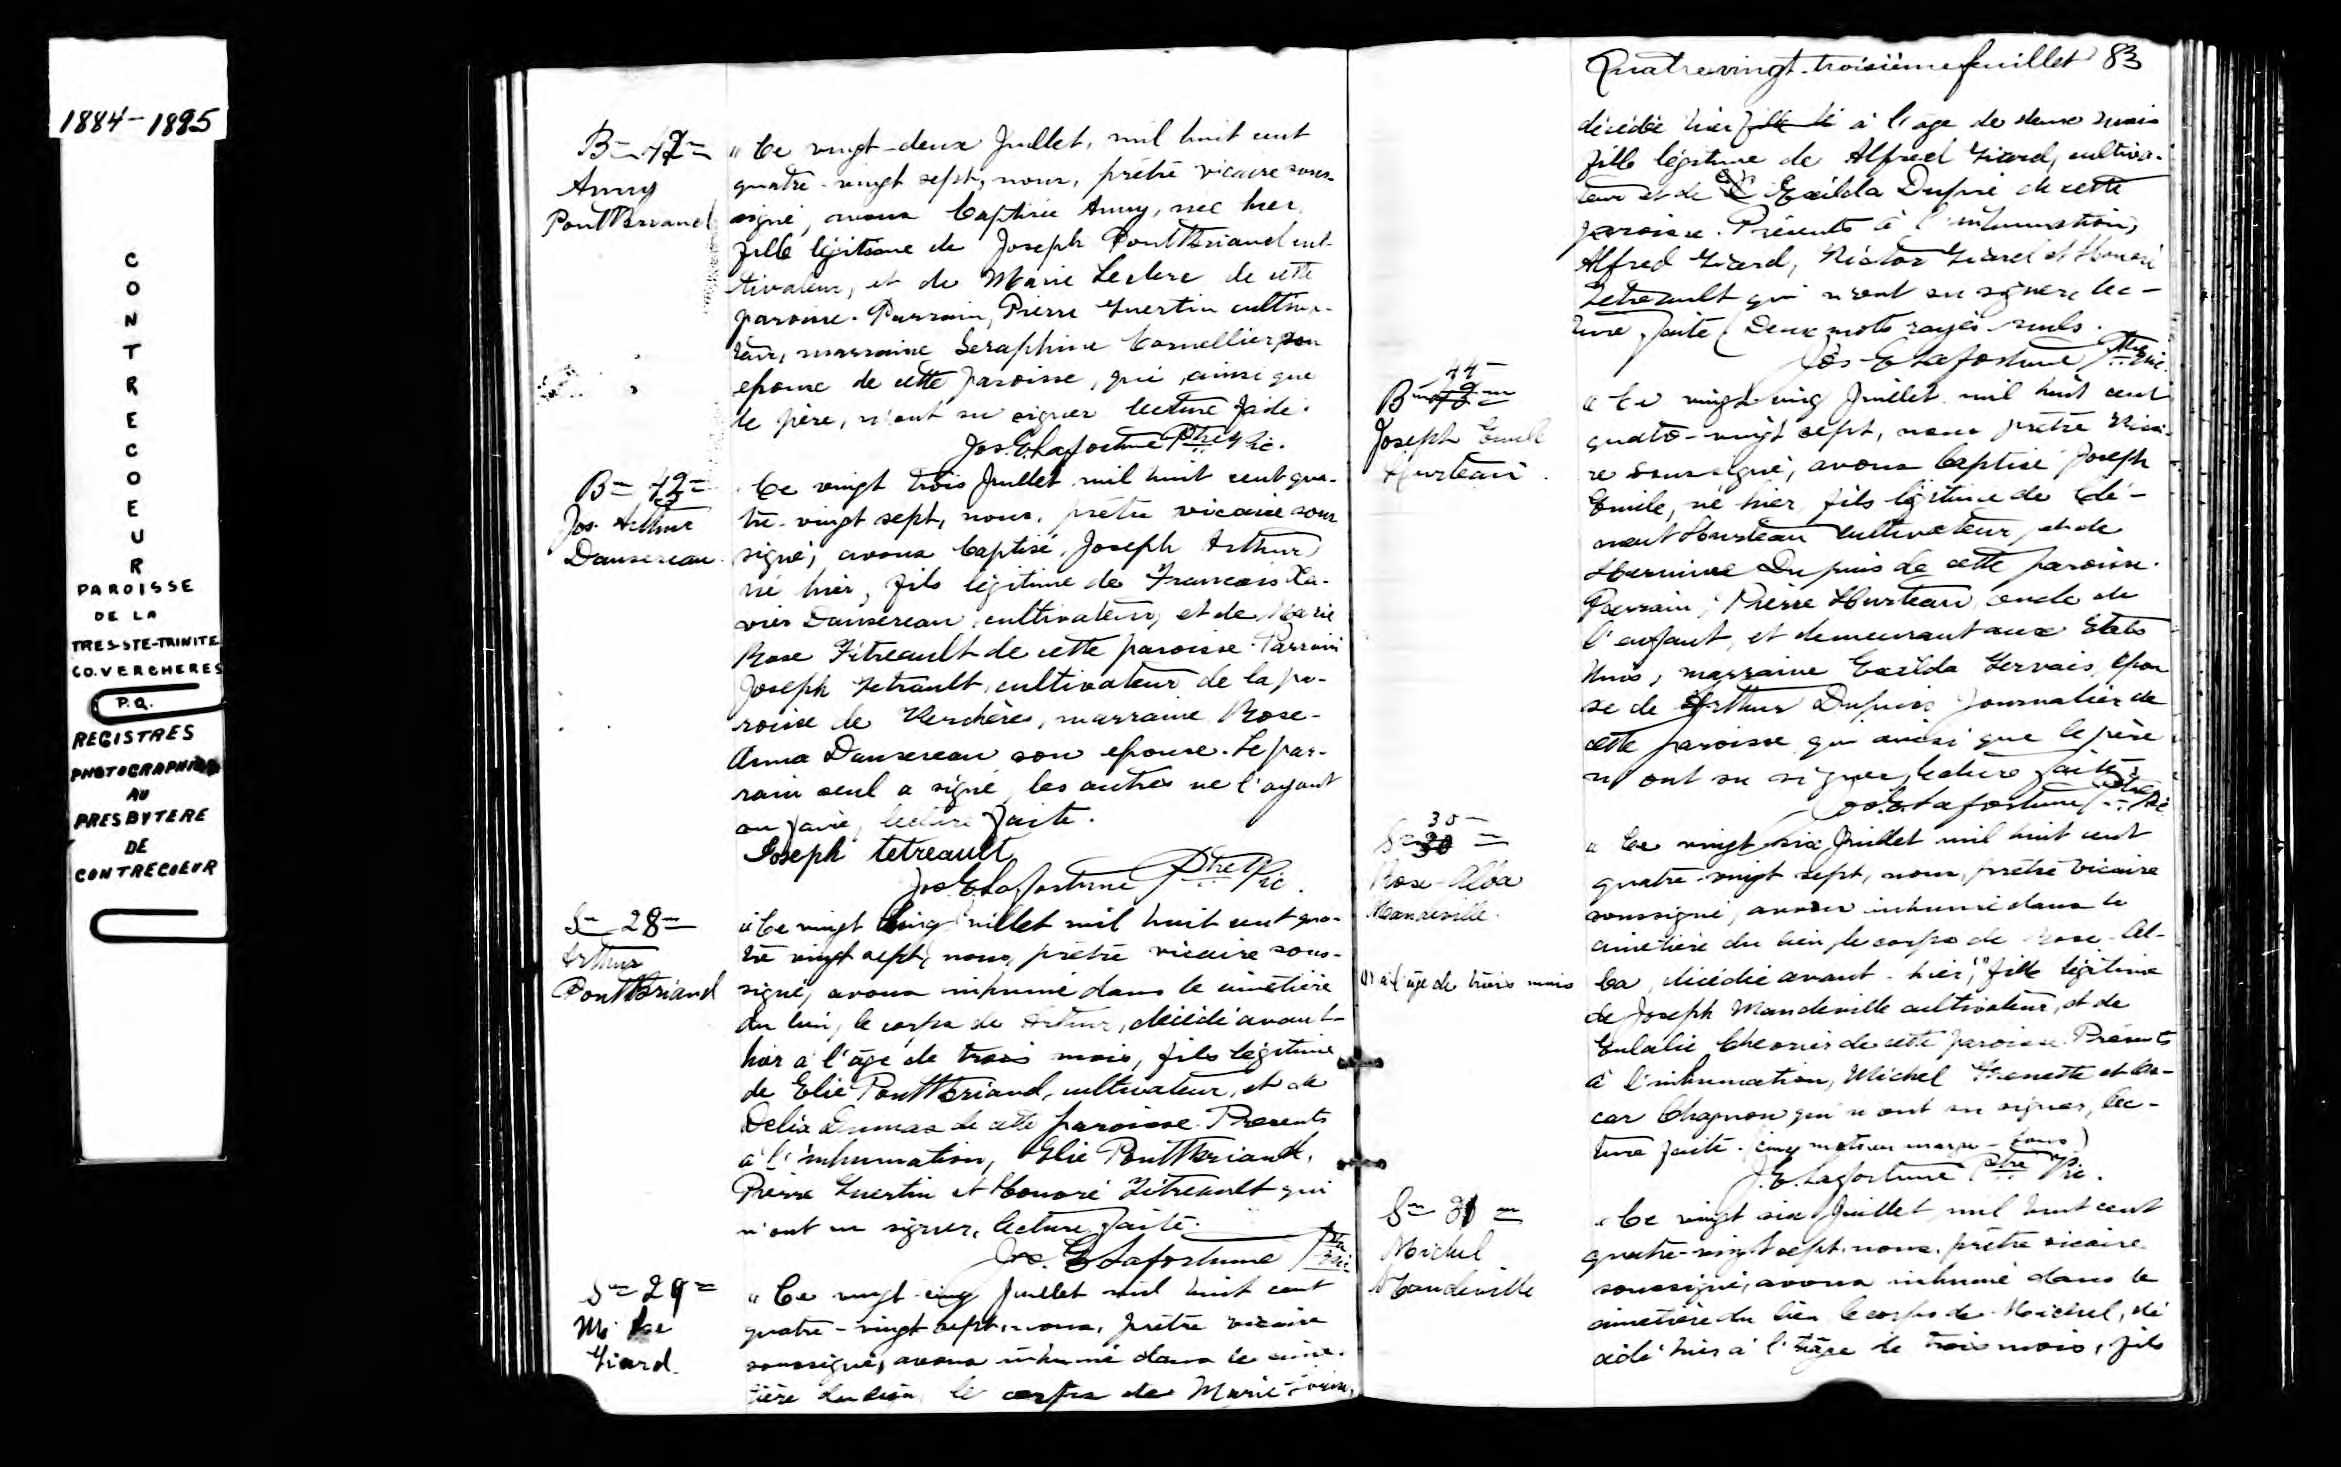 1884-1895
CONTRECOEUR
PAROISSE
DE LA
TRES-STE-TRINITE
CO.VERCHERES
P.Q.
REGISTRES
PHOTOGRAPHIES
AU
PRESBYTERE
DE
CONTRECOEUR
B- 42-
Anny
PontBriand
"Ce vingt-deux Juillet, mil huit cent
quatre-vingt sept, nous, prêtre vicaire sous-
signé, avons baptisée Anny, née hier,
fille légitime de Joseph PontBriand cul-
tivateur, et de Marie Leclerc de cette
paroisse. Parrain, Pierre Guertin cultiva-
teur, marraine Seraphine Cornellier son
epouse de cette paroisse, qui, ainsi que
le père, n'ont su signer lecture faite.
Jos. E. Lafortune Ptre Vic.
B- 43-
Jos. Arthur
Dansereau
Ce vingt trois Juillet mil huit cent qua-
tre-vingt sept, nous, prêtre vicaire sous
signé, avons baptisé, Joseph Arthur
né hier, fils légitime de Francois Xa-
vier Dansereau, cultivateur, et de Marie
Rose Tétreault de cette paroisse. Parrain
Joseph Tetrault, cultivateur de la pa-
roisse de Verchères, marraine Rose-
Anna Dansereau son epouse. Le par-
rain seul a signé, les autres ne l'ayant
su faire, lecture faite.
Joseph tetreault
Jos E Lafortune Ptre Vic.
S- 28-
Arthur
PontBriand
"Ce vingt cinq Juillet mil huit cent qua-
tre vingt sept, nous, prêtre vicaire sous-
signé, avons inhumé dans le cimetière
du lieu, le corps de Arthur, décédé avant-
hier à l'âge de trois mois, fils légitime
de Elie PontBriand, cultivateur, et de
Delia Dumas de cette paroisse. Presents
à l'inhumation, Elie PontBriand,
Pierre Guertin et Honoré Tétreault qui
n'ont su signer, lecture faite.
Jos. E Lafortune Ptre Vic
S- 29-
M.
Giard.
"Ce vingt-cinq Juillet mil huit cent
quatre-vingt sept, nous, prêtre vicaire
soussigné, avons inhumé dans le cime-
tière du lieu le corps de Marie-
Quatrevingt-troisième feuillet 83
décédée hier fille de à l'age de deux mois
fille légitime de Alfred Giard, cultiva-
teur et de Exilda Dupré de cette
paroisse. Présents à l'inhumation,
Alfred Giard, Giard et Honoré
Tetreault qui n'ont su signer, lec-
ture faite. Deux mots rayés nuls.
Jos-E Lafortune Ptre Vic.
44-
B-
Joseph Emile
Hurteau.
"Ce vingt cinq Juillet mil huit cent
quatre-vingt sept, nous prêtre vicai-
re soussigné, avons baptisé Joseph
Emile, né hier, fils légitime de Clé-
ment Hurteau cultivateur, et de
Hermine Dupuis de cette paroisse.
Parrain, Pierre Hurteau, oncle de
l'enfant, et demeurant aux Etats
Unis, marraine Exilda Gervais, épou
se de Arthur Dupuis journalier de
cette paroisse qui ainsi que le père
n'ont su signer, lecture faite.
Jos E Lafortune Ptre Vic
30-
S- 30 -
Rose-Alba
Mandeville.
" Ce vingt six Juillet mil huit cent
quatre-vingt sept, nous, prêtre vicaire
soussigné, avons inhumé dans le
cimetière du lieu, le corps de Rose-Al-
ba, décédée avant-hier, fille légitime
à l'âge de trois mois
de Joseph Mandeville cultivateur, et de
Eulalie de cette paroisse. Présents
à l'inhumation, Michel Frenette et Os-
car Chagnon qui n'ont su signer, lec-
ture faite. cinq mots en marge - bons)
J. E. Lafortune Ptre Vic.
S- 31 -
Michel
Mandeville
"Ce vingt six Juillet mil huit cent
quatre-vingt sept, nous, prêtre vicaire
soussigné, avons inhumé dans le
cimetière du lieu le corps de Michel, dé
cédé hier à l'âge de trois mois, fils